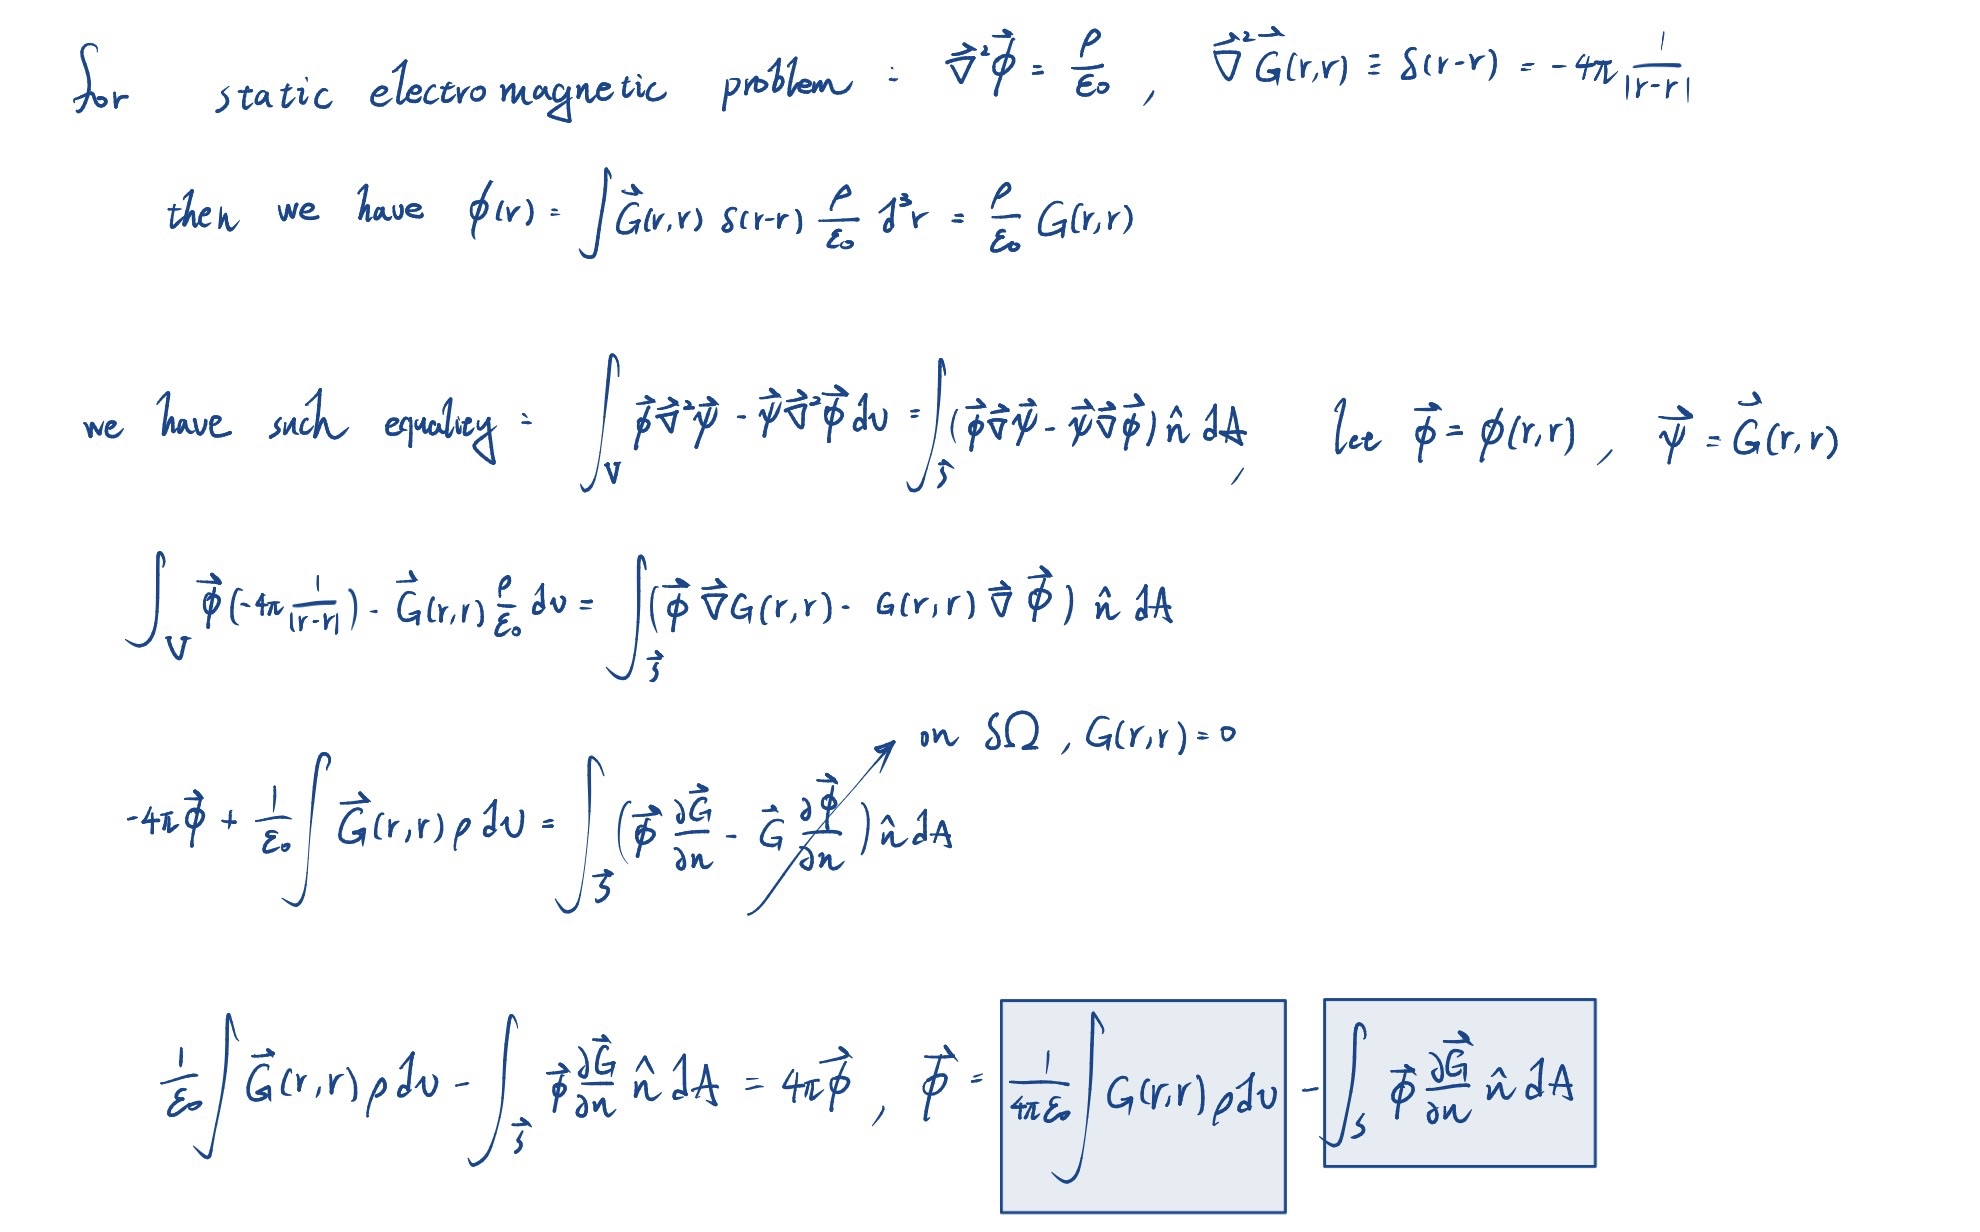 for static electromagnetic problem : $\vec{\nabla}^2 \vec{\phi} = \frac{\rho}{\varepsilon_0}$ , $\vec{\nabla}^2 \vec{G}(r,r) \equiv \delta(r-r) = -4\pi \frac{1}{|r-r|}$
then we have $\phi(r) = \int \vec{G}(r,r) \delta(r-r) \frac{\rho}{\varepsilon_0} d^3r = \frac{\rho}{\varepsilon_0} G(r,r)$
we have such equality : $\int_V \vec{\phi} \vec{\nabla}^2 \vec{\psi} - \vec{\psi} \vec{\nabla}^2 \vec{\phi} dv = \int_{\vec{s}} (\vec{\phi} \vec{\nabla} \vec{\psi} - \vec{\psi} \vec{\nabla} \vec{\phi}) \hat{n} dA$ , let $\vec{\phi} = \phi(r,r)$ , $\vec{\psi} = \vec{G}(r,r)$
$\int_V \vec{\phi} (-4\pi \frac{1}{|r-r|}) - \vec{G}(r,r) \frac{\rho}{\varepsilon_0} dv = \int_{\vec{s}} (\vec{\phi} \vec{\nabla} G(r,r) - G(r,r) \vec{\nabla} \vec{\phi}) \hat{n} dA$
on $\delta\Omega$ , $G(r,r) = 0$
$-4\pi \vec{\phi} + \frac{1}{\varepsilon_0} \int \vec{G}(r,r) \rho dv = \int_{\vec{s}} (\vec{\phi} \frac{\partial \vec{G}}{\partial n} - \vec{G} \frac{\partial \vec{\phi}}{\partial n}) \hat{n} dA$
$\frac{1}{\varepsilon_0} \int \vec{G}(r,r) \rho dv - \int_{\vec{s}} \vec{\phi} \frac{\partial \vec{G}}{\partial n} \hat{n} dA = 4\pi \vec{\phi}$ , $\vec{\phi} = \frac{1}{4\pi\varepsilon_0} \int G(r,r) \rho dv - \int_s \vec{\phi} \frac{\partial \vec{G}}{\partial n} \hat{n} dA$